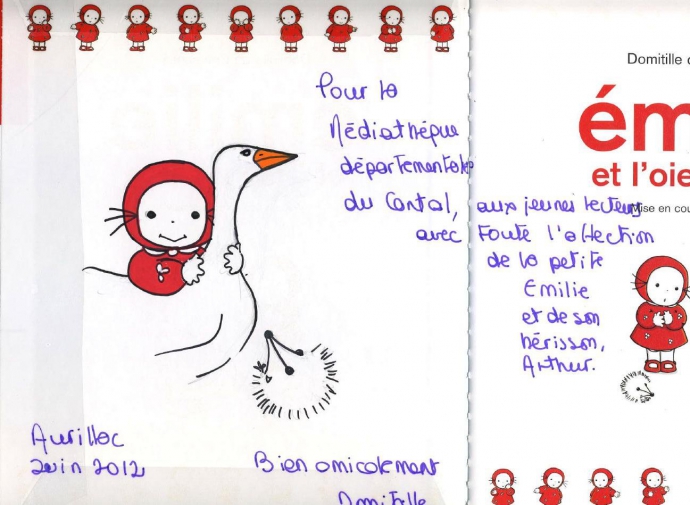 Pour la
Médiathèque
départementale
du Cantal, aux jeunes lecteurs
avec toute l'affection
de la petite
Emilie
et de son
hérisson,
Arthur.
Aurillac
Juin 2012
Bien amicalement
Domitille
Domitille d
ém
et l'oie
Mise en cou